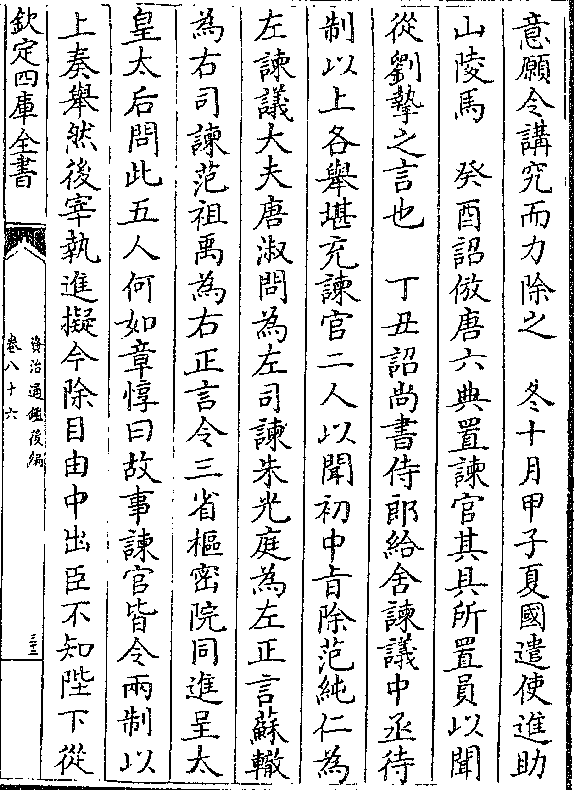 意願令講究而力除之　冬十月甲子夏國遣使進助
山陵馬　癸酉詔倣唐六典置諫官其具所置員以聞
從劉摯之言也　丁丑詔尚書侍郎給舍諫議中丞待
制以上各舉堪充諫官二人以聞初中旨除范純仁為
左諫議大夫唐淑問為左司諫朱光庭為左正言蘇轍
為右司諫范祖禹為右正言令三省樞密院同進呈太
皇太后問此五人何如章惇曰故事諫官皆令兩制以
上奏舉然後宰執進擬今除目由中出臣不知陛下從
欽定四庫全書
資治通鑑後編
卷八十六
三三